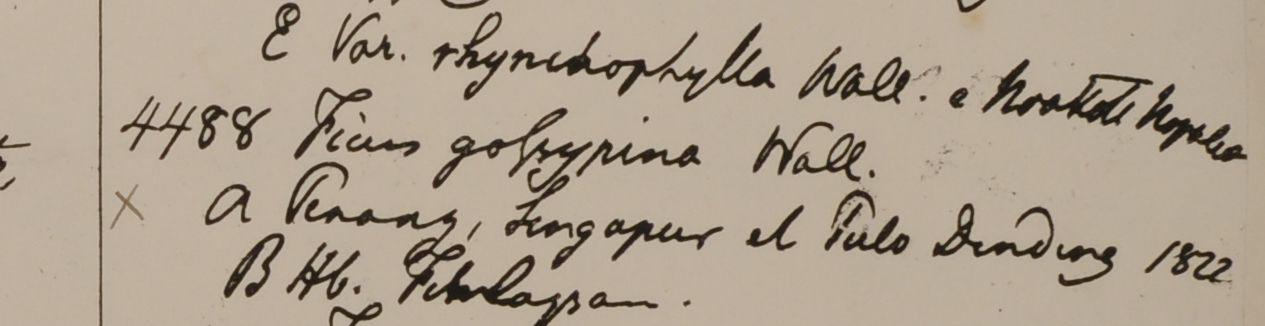 E Var. rhynchophylla Wall. e Noakote Nepalia
4488 Ficus gossypina Wall.
X A Penang, Singapur et Pulo Dinding 1822
B Hb. Finlayson.